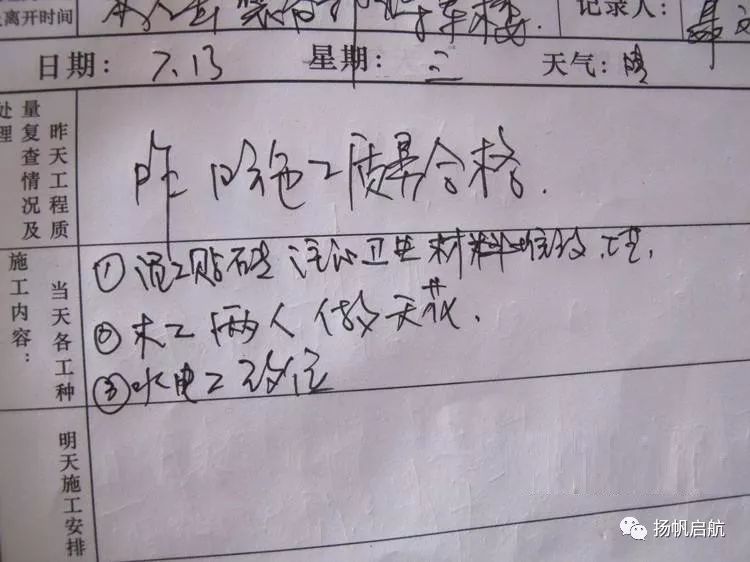 离开时间 记录人:
日期: 7.13 星期: 三 天气: 晴
昨天工程质量复查情况及处理
昨日施工质量合格.
当天各工种施工内容:
①泥工贴砖 注意卫生材料堆放
②木工两人做天花.
③水电工放位
明天施工安排
扬帆启航